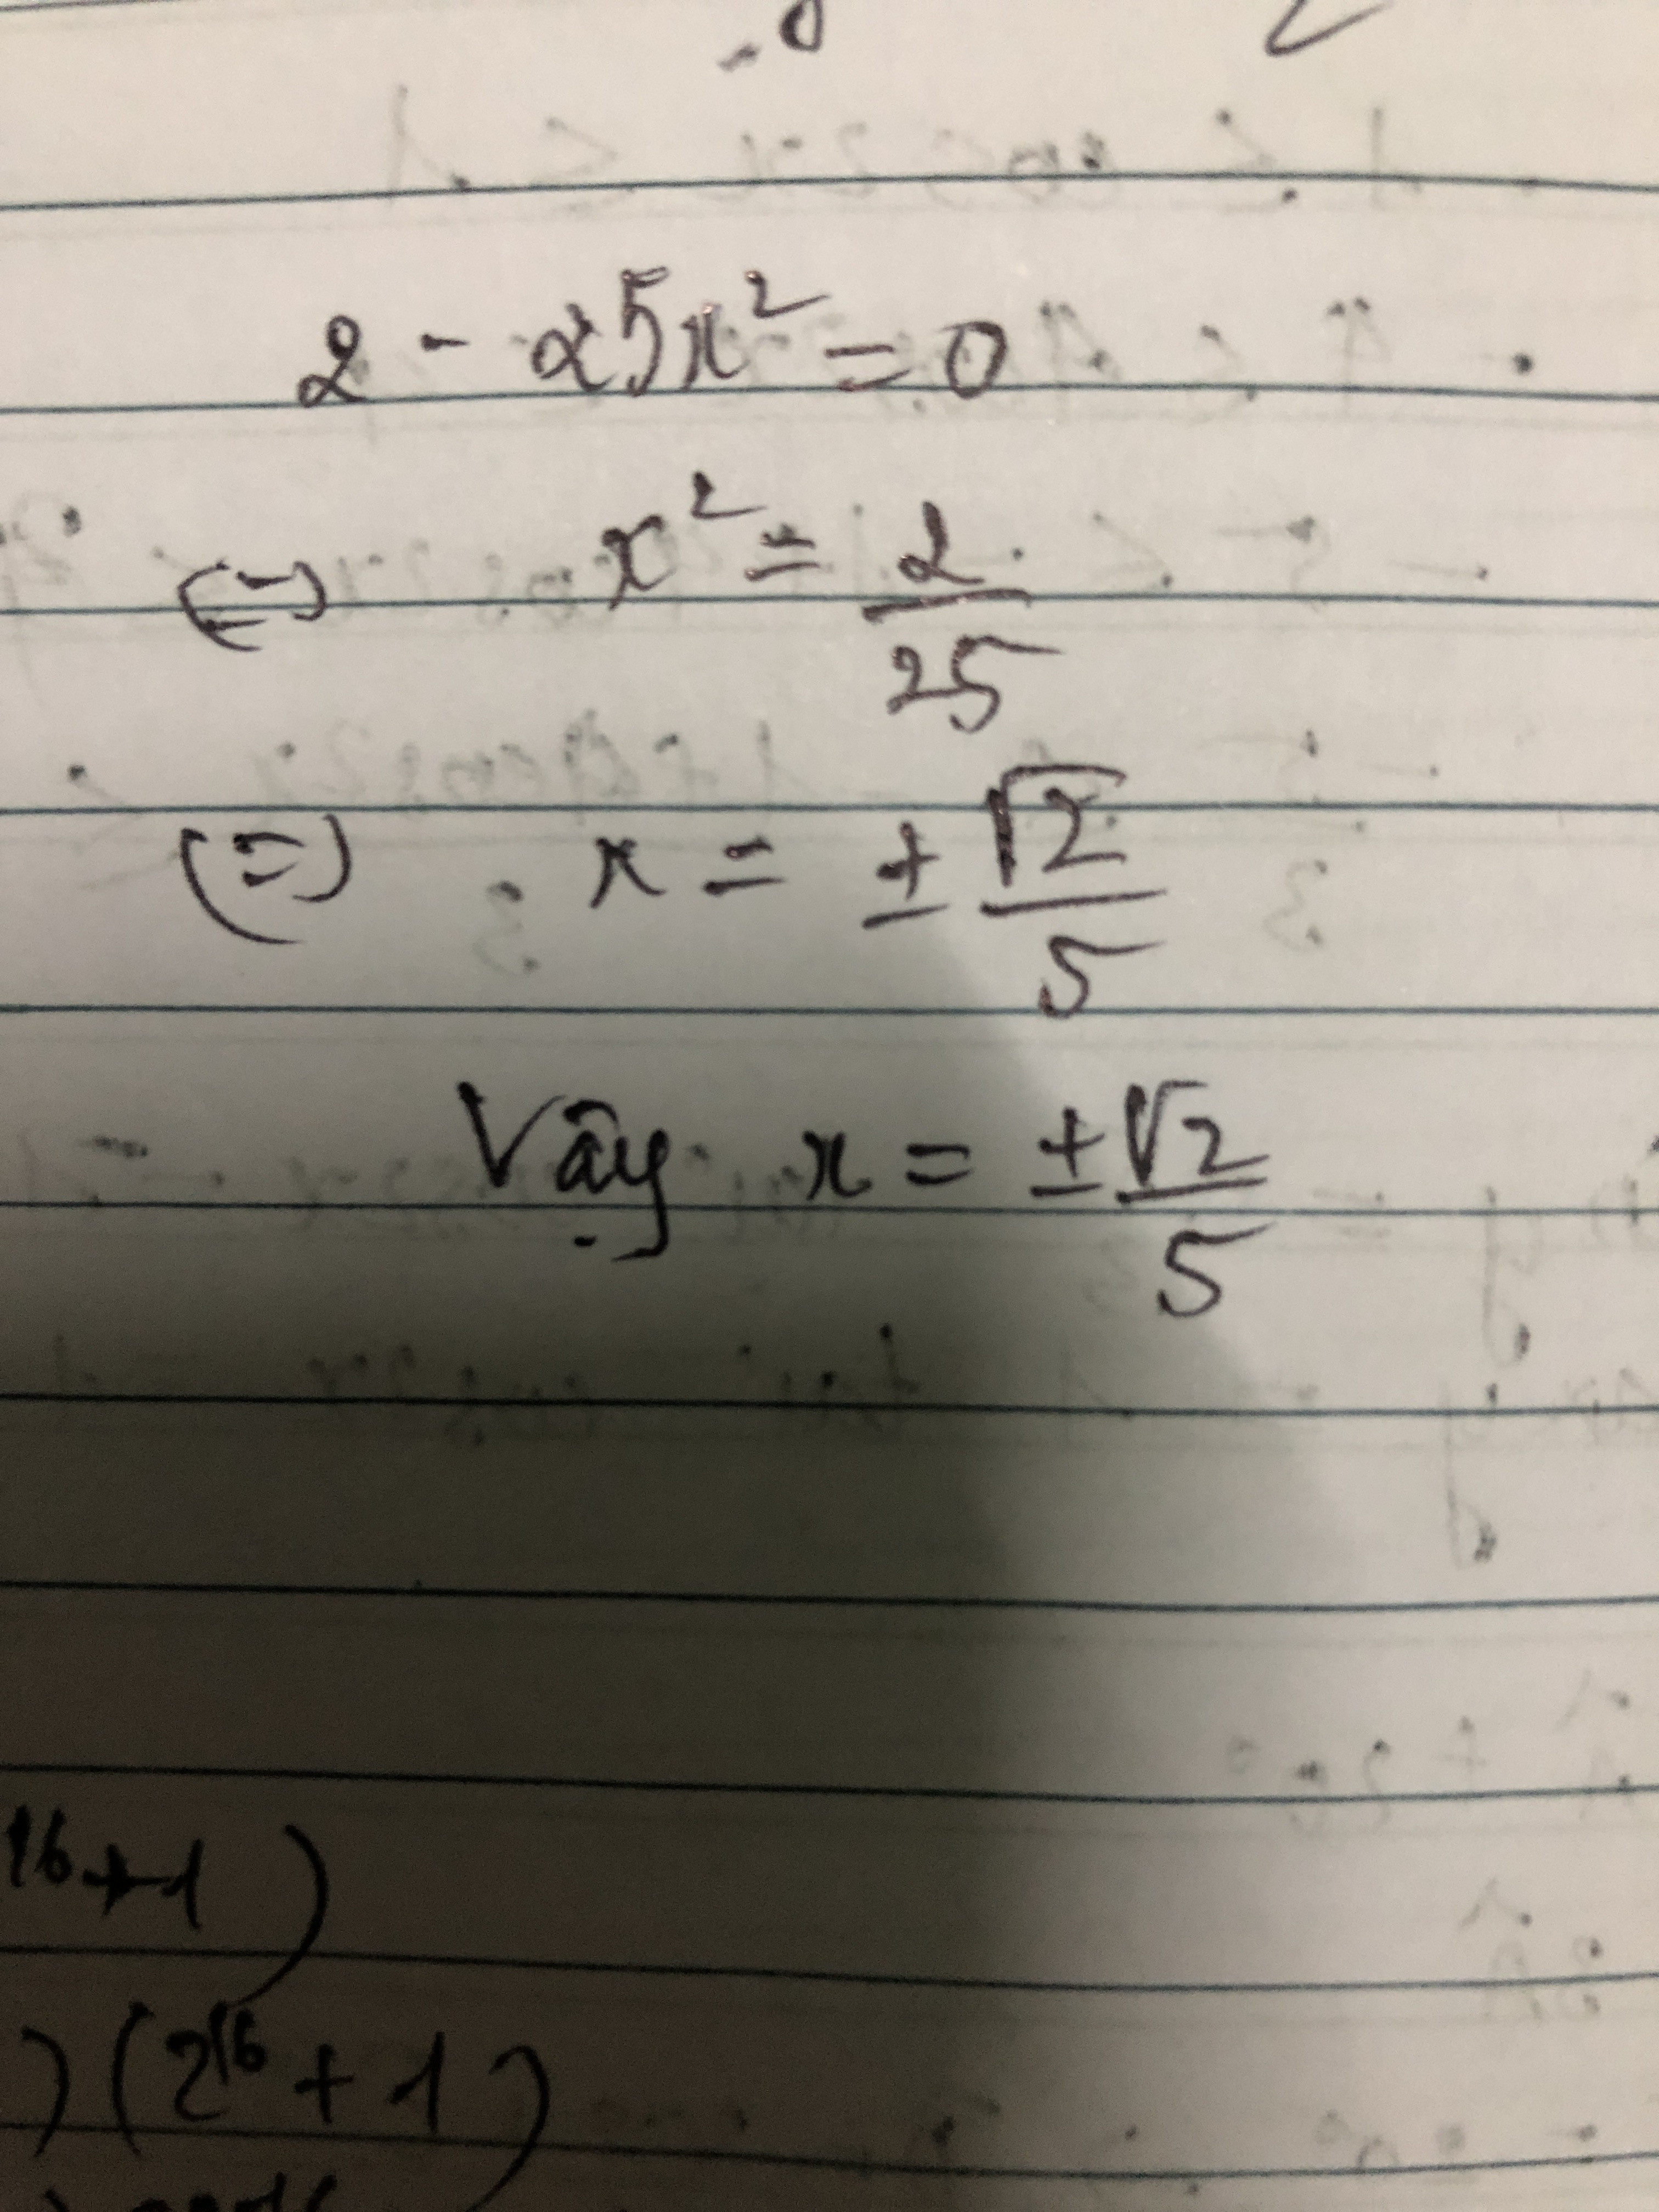 2 - 25x² = 0
(=) x² = 2/25
(=) x = ± √2/5
Vậy x = ± √2/5
16 + 1 )
) ( 2¹⁶ + 1 )